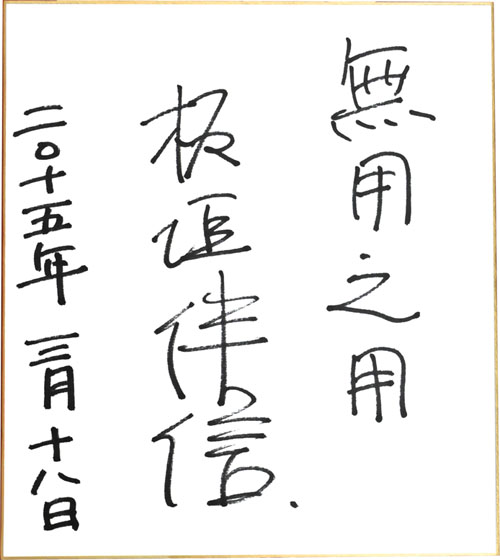 無用之用
板垣伴信
二〇十五年 三月 十八日